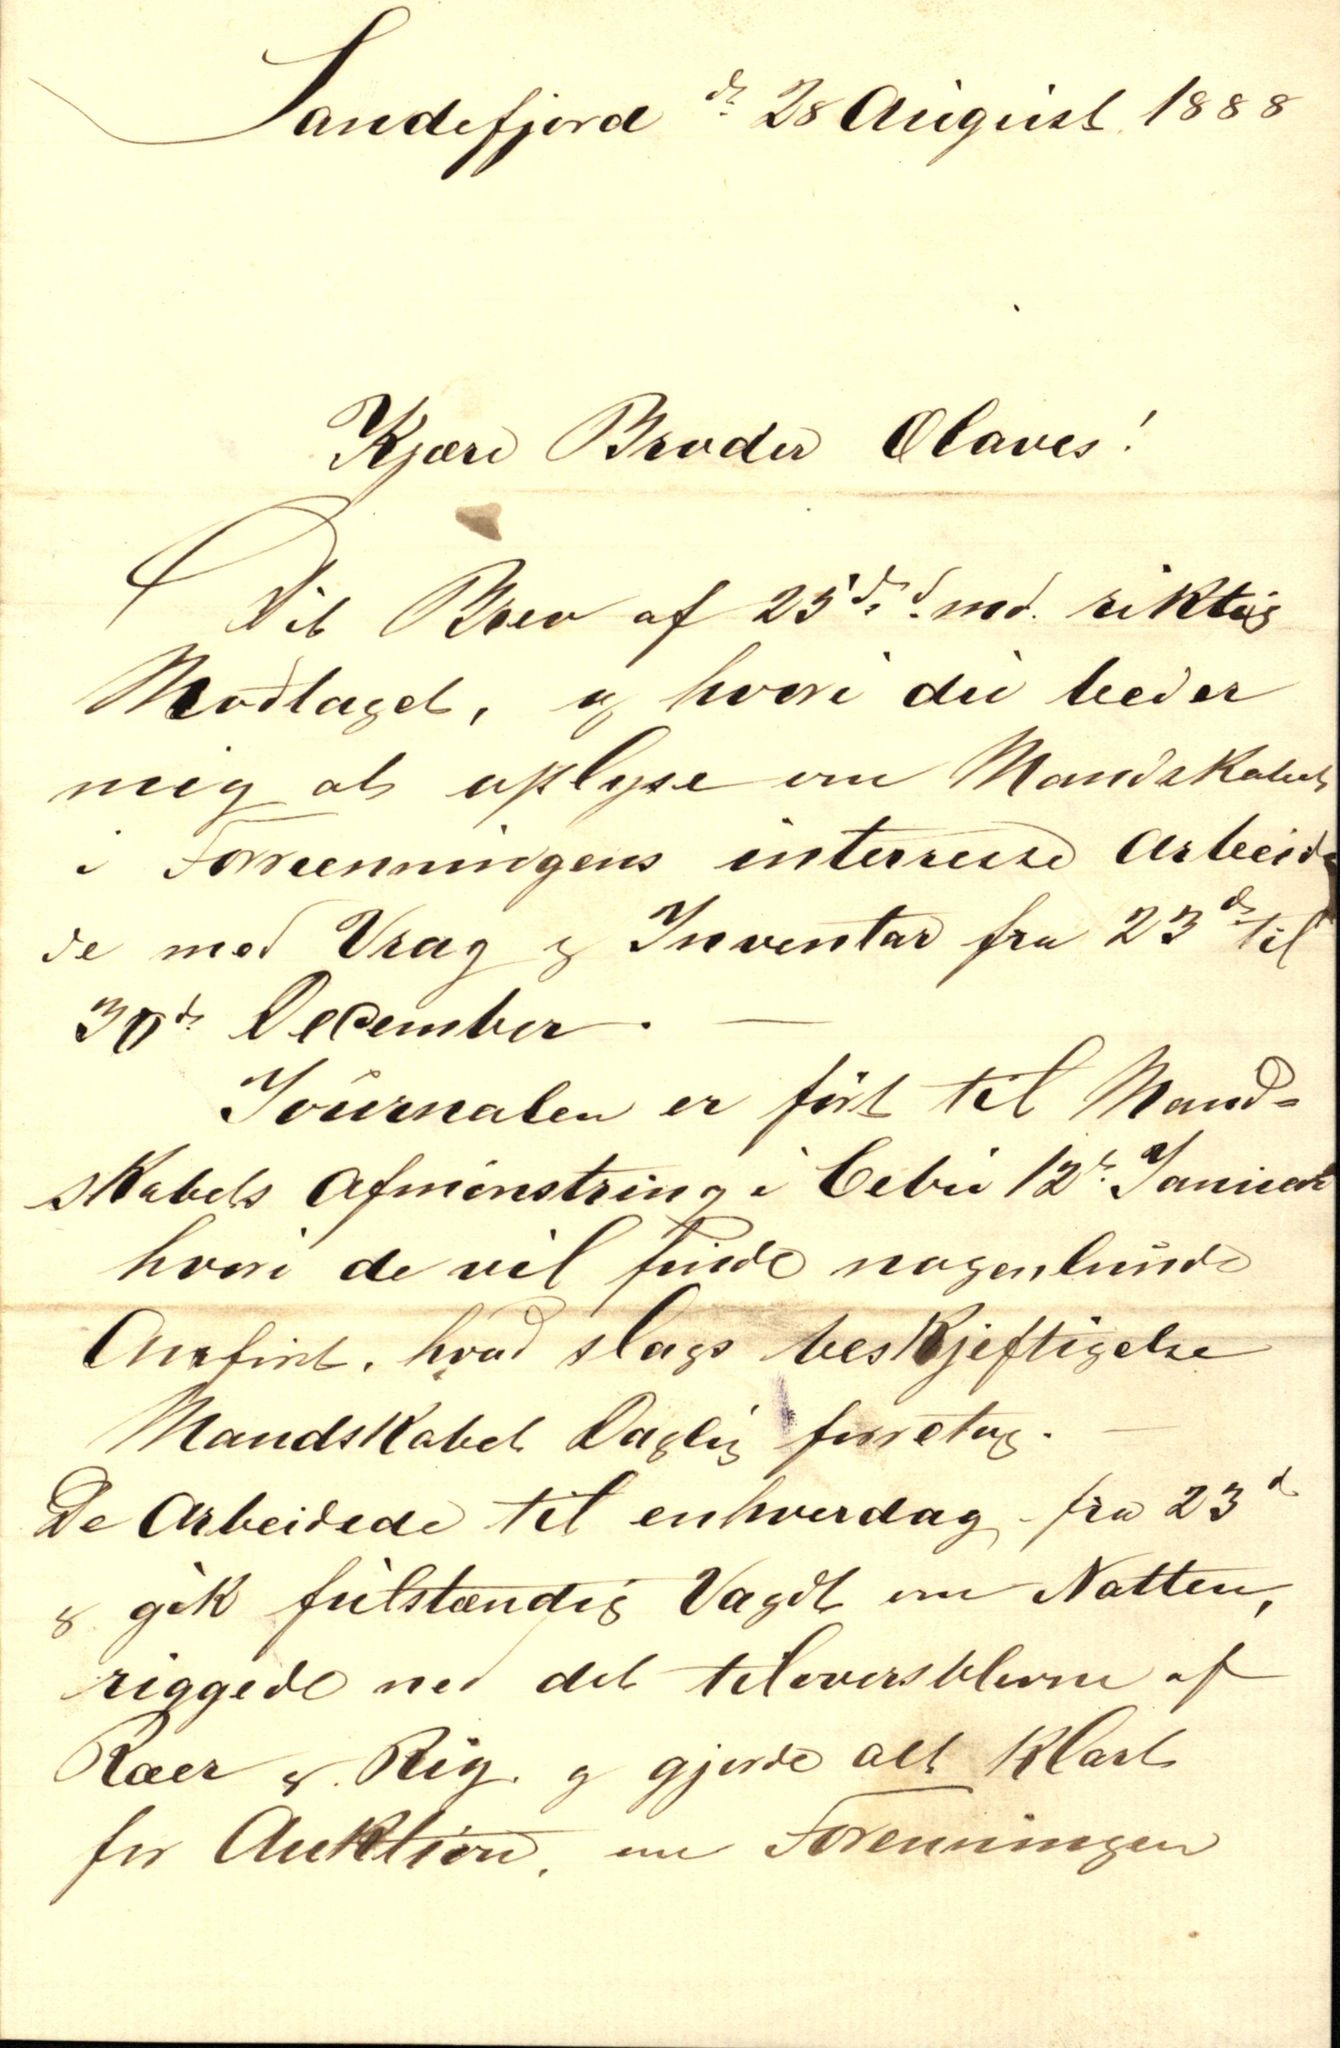 Sandefjord d. 28 August 1888
Kjære Broder Olaves!
Dit Brev af 25d. d. md. riktig
Modtaget, og hvori du beder
mig at oplyse om Mandskabet
i Forreenningens interresse Arbeid-
de med Vrag & Inventar fra 23d. til
30d. December. —
Journalen er ført til Mand=
skabets Afmønstring i Cebu 12t. Januar
hvori de vil finde nogenlunde
Anført, hvad slags beskjeftigelse
Mandskabet Daglig forretog. —
De Arbeidede til enhverdag fra 23d
& gik fulstændig Vagdt om Natten,
riggede ned det tiloversblevne af
Raaer & Rig. og gjorde alt klart
for Auktion, om Forenningen